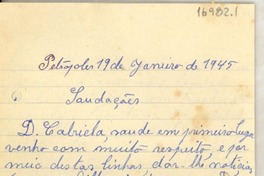 16982.1
Petópoles 19 de Janeiro de 1945
Saudações
D. Gabriela, saude em primeiro luga
venho com muito respeito, e por
meio destas linhas dar-lhe noticia,